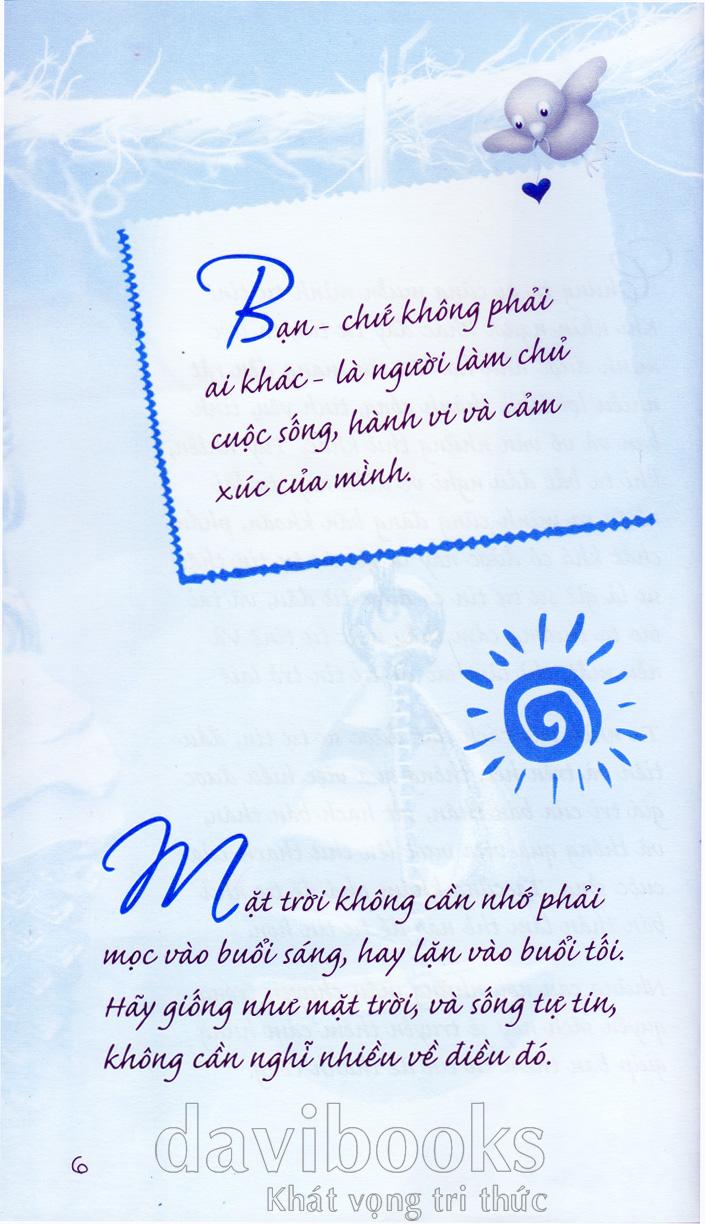 Bạn - chứ không phải
ai khác - là người làm chủ
cuộc sống, hành vi và cảm
xúc của mình.
Mặt trời không cần nhớ phải
mọc vào buổi sáng, hay lặn vào buổi tối.
Hãy giống như mặt trời, và sống tự tin,
không cần nghĩ nhiều về điều đó.
davibooks
6
Khát vọng tri thức